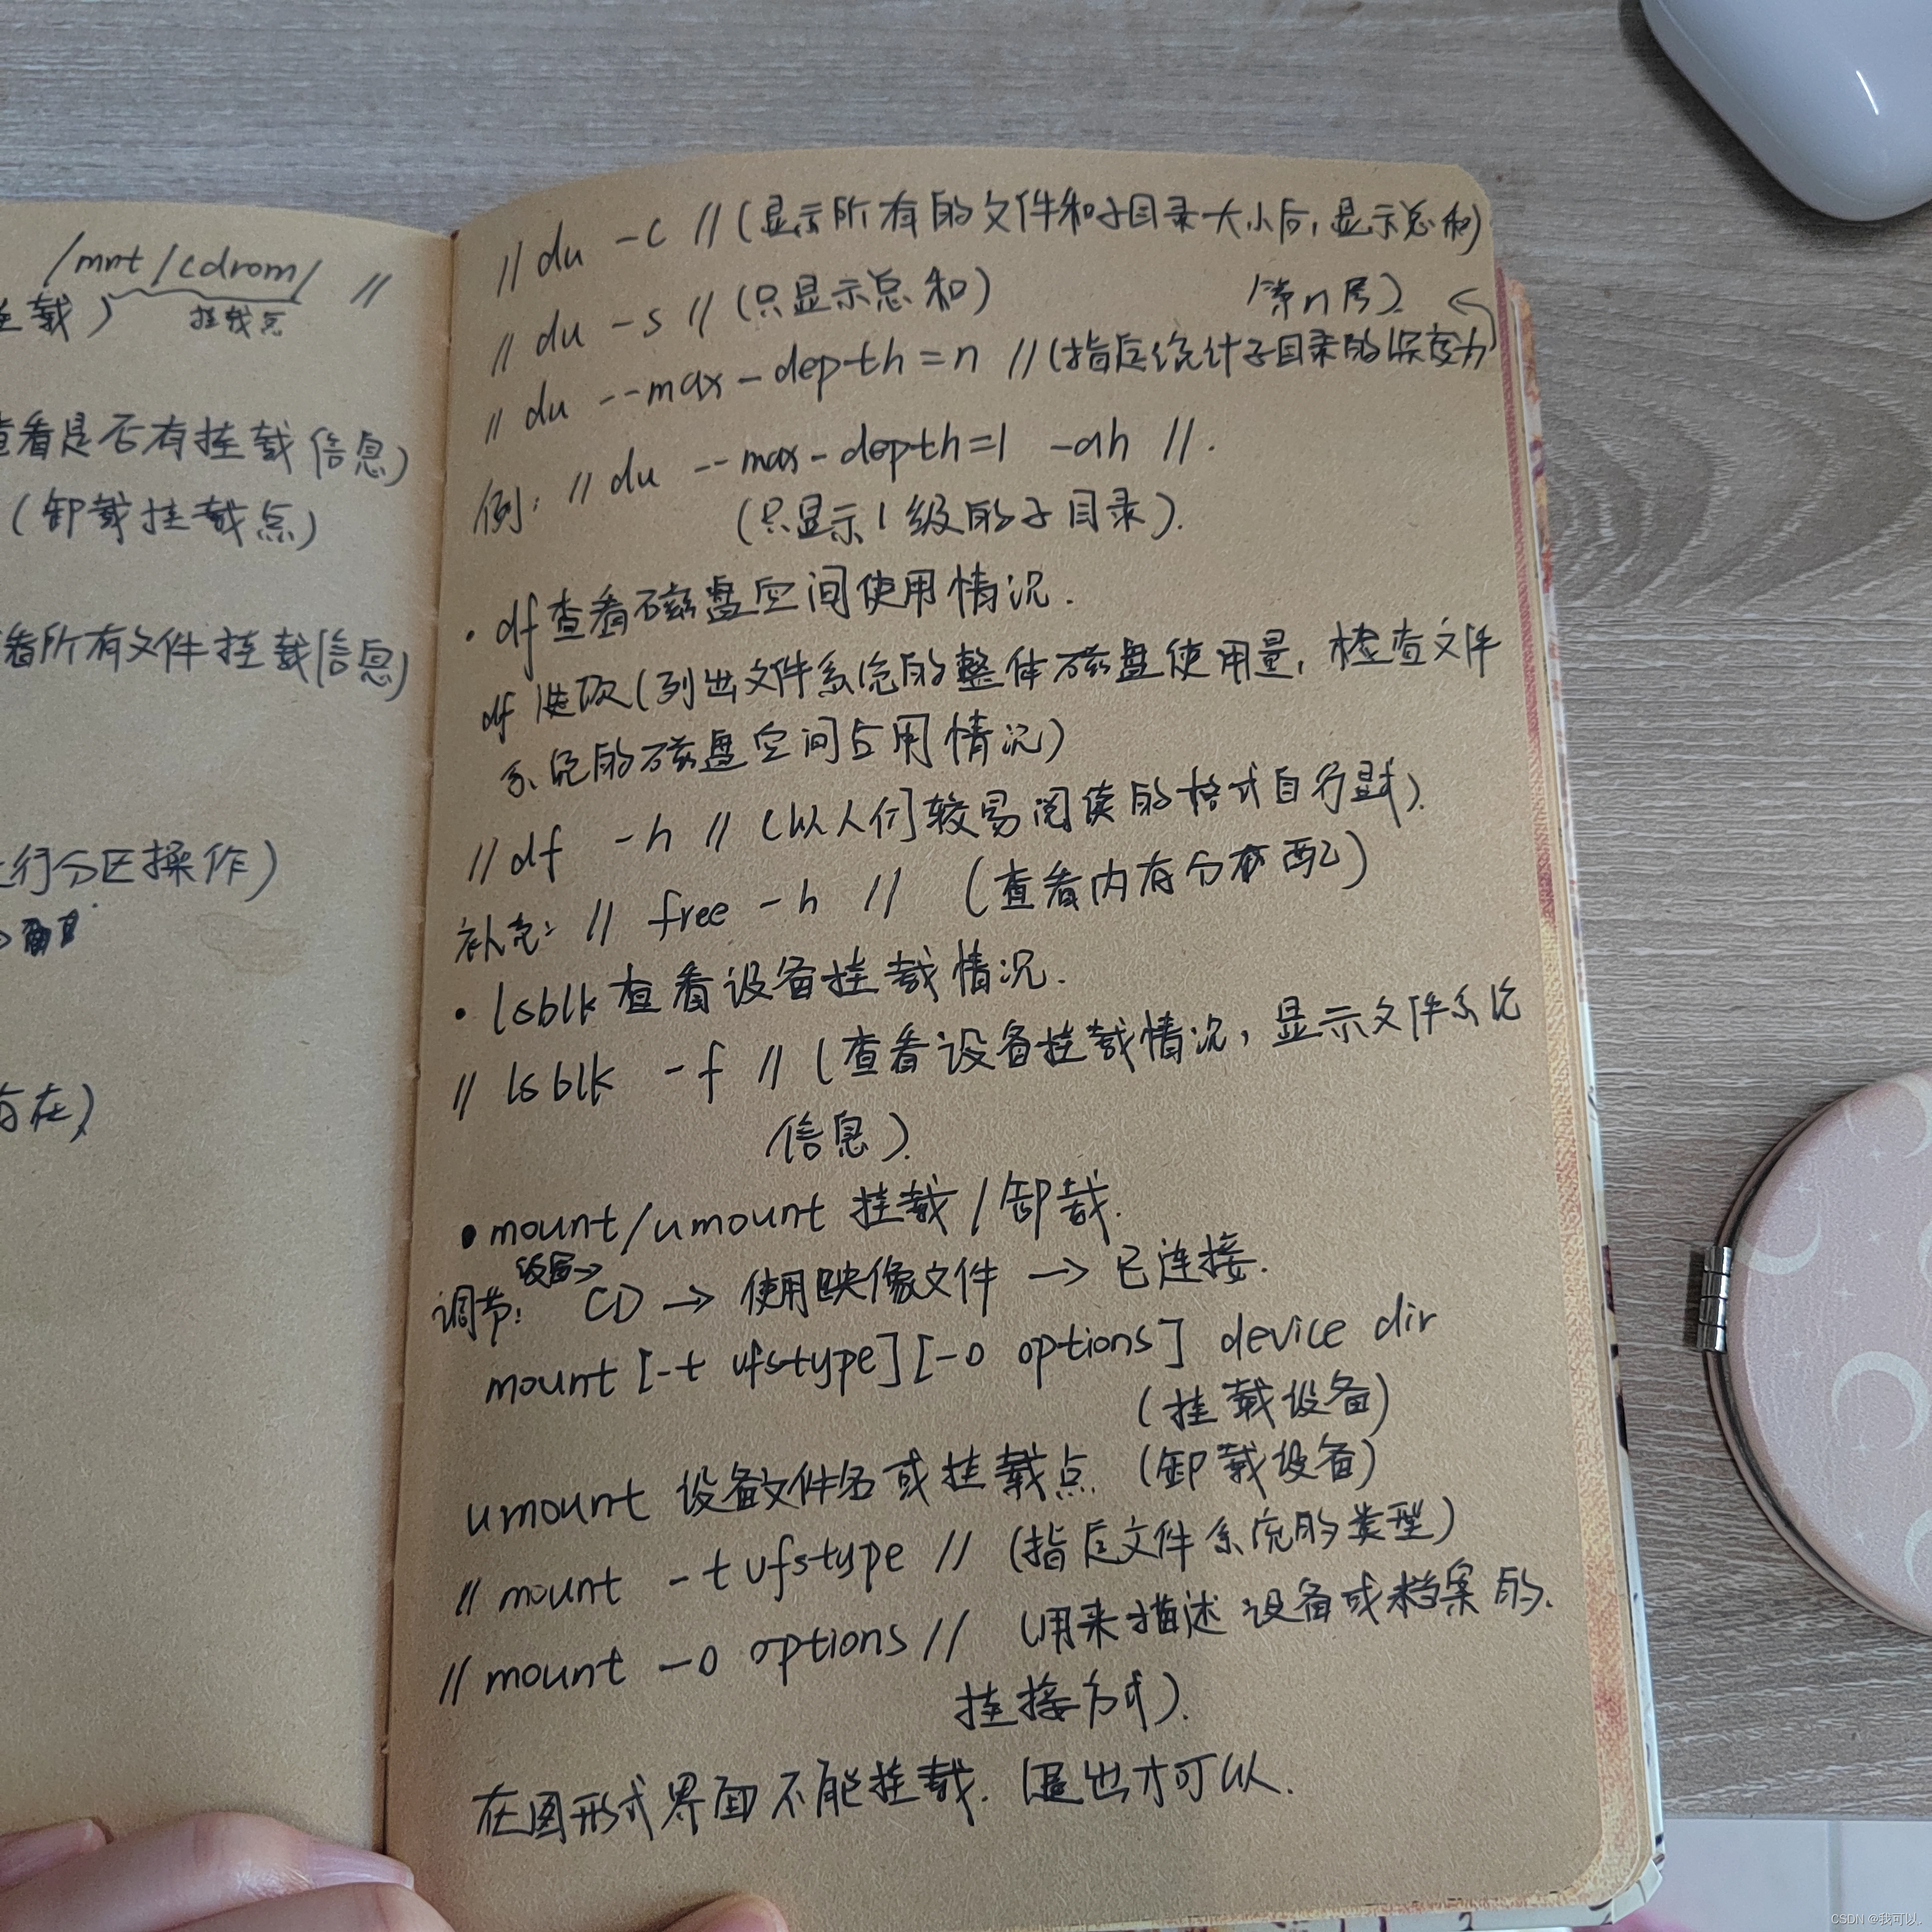 /mnt/cdrom/ //
挂载)
挂载点
查看是否有挂载信息)
(卸载挂载点)
看所有文件挂载信息)
行分区操作)
存在)
// du -c //(显示所有的文件和子目录大小后,显示总和)
// du -s //(只显示总和)
// du --max-depth=n //(指定统计子目录的深度为
第n层).
例: // du --max-depth=1 -ah //.
(只显示1级的子目录).
· df查看磁盘空间使用情况.
df 选项(列出文件系统的整体磁盘使用量,检查文件
系统的磁盘空间占用情况)
// df -h // (以人们较易阅读的格式自行显示).
补充: // free -h // (查看内存分配)
· lsblk查看设备挂载情况.
// lsblk -f // (查看设备挂载情况,显示文件系统
信息).
· mount/umount 挂载/卸载.
调节: CD → 使用映像文件 → 已连接.
设置→
mount [-t vfstype][-o options] device dir
(挂载设备)
umount 设备文件名或挂载点 (卸载设备)
// mount -t vfstype // (指定文件系统的类型)
// mount -o options // (用来描述设备或档案的.
挂接方式).
在图形式界面不能挂载. 退出才可以.
CSDN @我可以